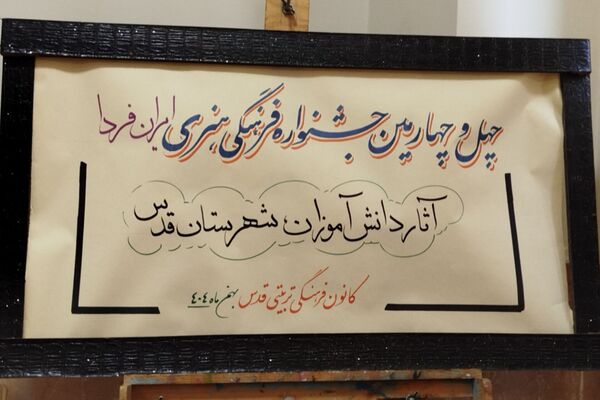 چهل و چهارمین جشنواره فرهنگی هنری ایران فردا
آثار دانش آموزان شهرستان قدس
کانون فرهنگی تربیتی قدس بهمن ماه ۴۰۴